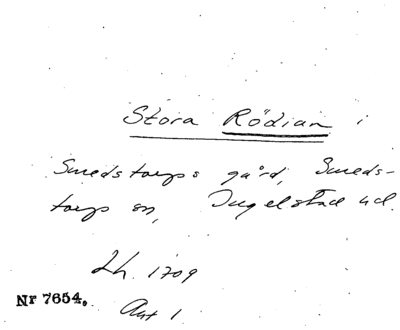 Stora Rödian i
Smedstorps gård, Smeds-
torps sn, Ingelstad hd.
Lh. 1709
Nr 7654.
Akt 1